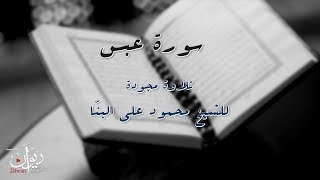 سورة عبس
تلاوة مجودة
للشيخ محمود علي البنّا
ديوان
Diwan